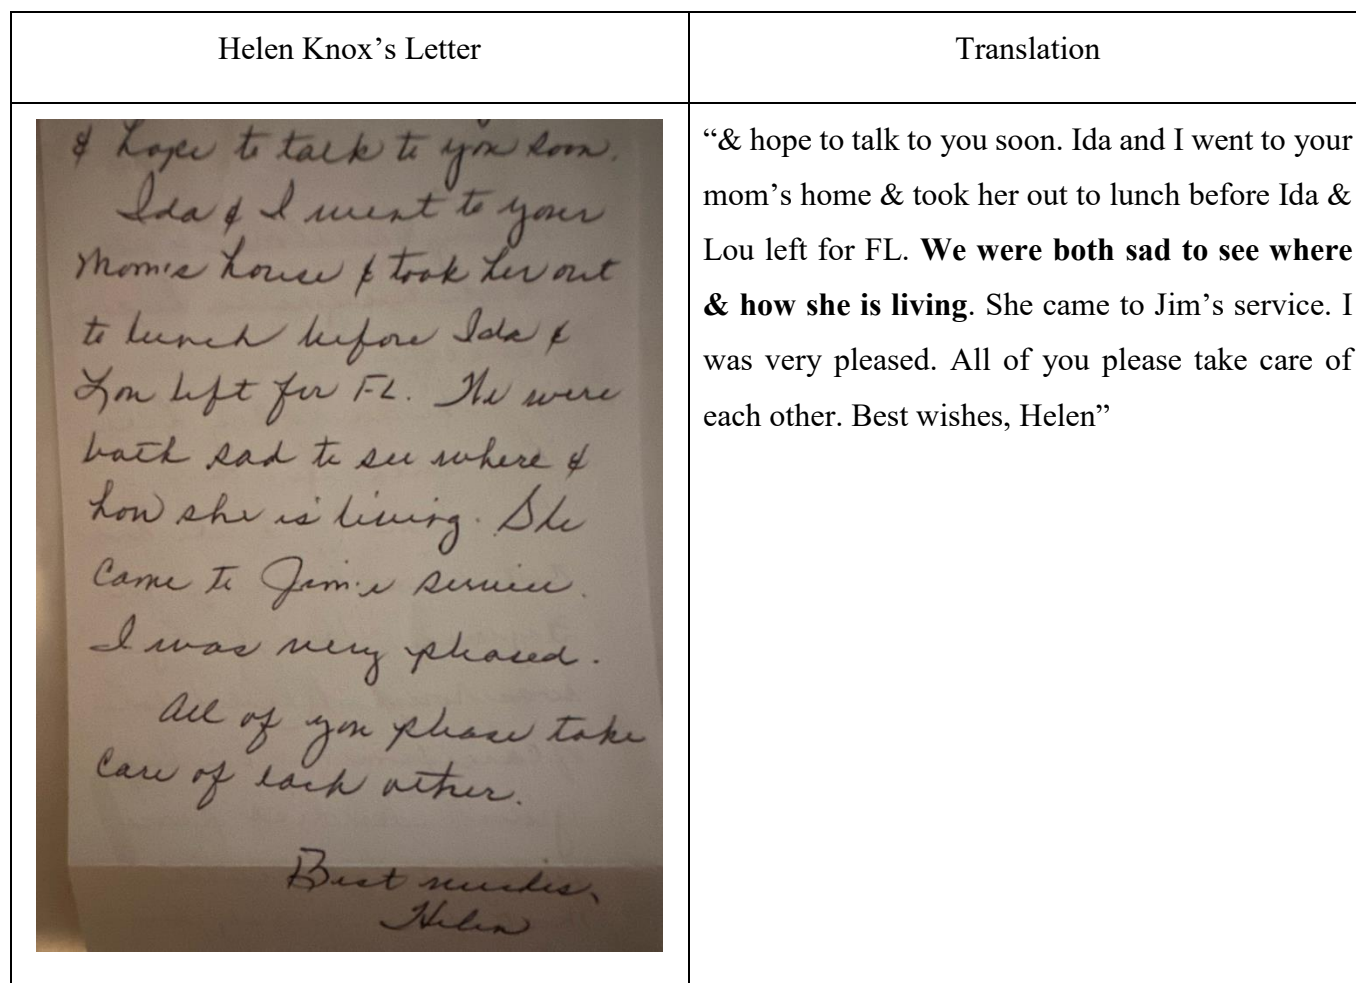 Helen Knox’s Letter
Translation
& hope to talk to you soon.
Ida & I went to your
Mom's house & took her out
to lunch before Ida &
Lou left for FL. We were
both sad to see where &
how she is living. She
came to Jim's service.
I was very pleased.
All of you please take
care of each other.
Best wishes,
Helen
“& hope to talk to you soon. Ida and I went to your
mom’s home & took her out to lunch before Ida &
Lou left for FL. We were both sad to see where
& how she is living. She came to Jim’s service. I
was very pleased. All of you please take care of
each other. Best wishes, Helen”